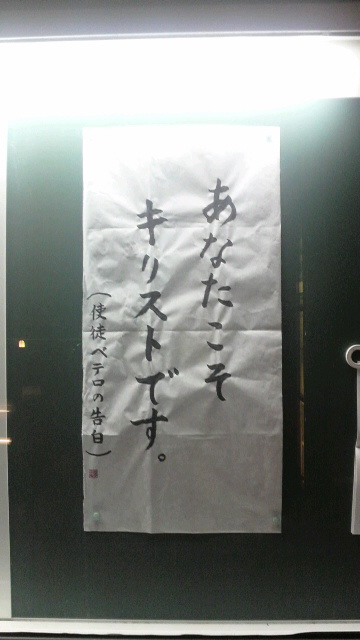 あなたこそ
キリストです。
(使徒ペテロの告白)